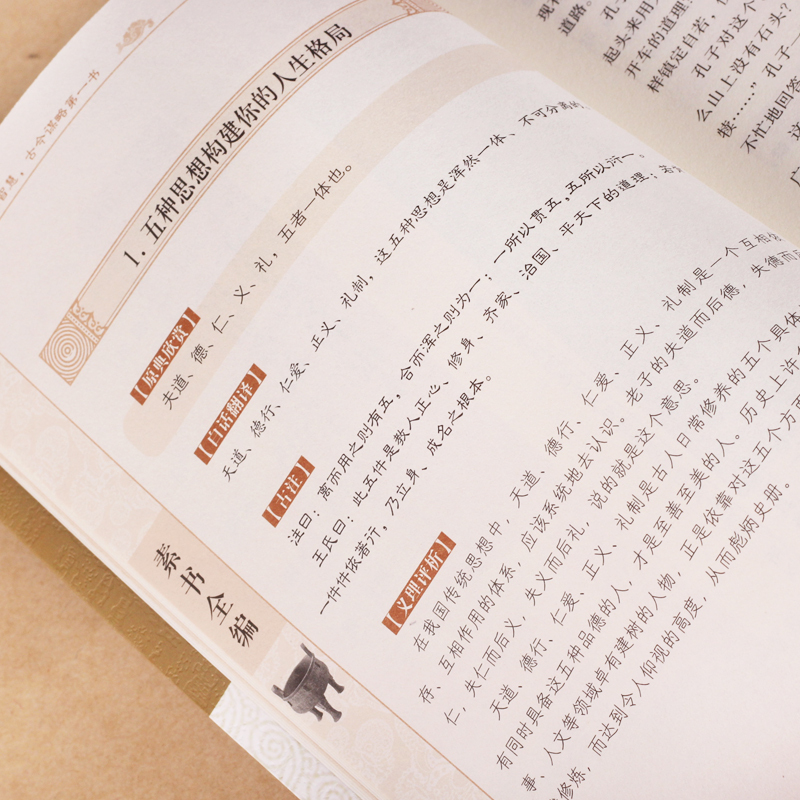 智慧，古今谋略第一书
1. 五种思想构建你的人生格局
【原典欣赏】
夫道、德、仁、义、礼，五者一体也。
【白话翻译】
天道、德行、仁爱、正义、礼制，这五种思想是浑然一体、不可分离的
【古注】
注曰：离而用之则有五，合而浑之则为一；一所以贯五，五所以衍一。
王氏曰：此五件是教人正心、修身、齐家、治国、平天下的道理；若
一件件依著行，乃立身、成名之根本。
【义理评析】
在我国传统思想中，天道、德行、仁爱、正义、礼制是一个互相依
存、互相作用的体系，应该系统地去认识。老子的失道而后德，失德而后
仁，失仁而后义，失义而后礼，说的就是这个意思。
天道、德行、仁爱、正义、礼制是古人日常修养的五个具体
有同时具备这五种品德的人，才是至善至美的人。历史上许
事、人文等领域卓有建树的人物，正是依靠对这五个方面
修炼，而达到令人仰视的高度，从而彪炳史册。
素书全编
现
道路。
起头来用
开车的道理
样镇定自若，
孔子对这个
么山上没有石头？
犊……”孔子
不忙地回答
这